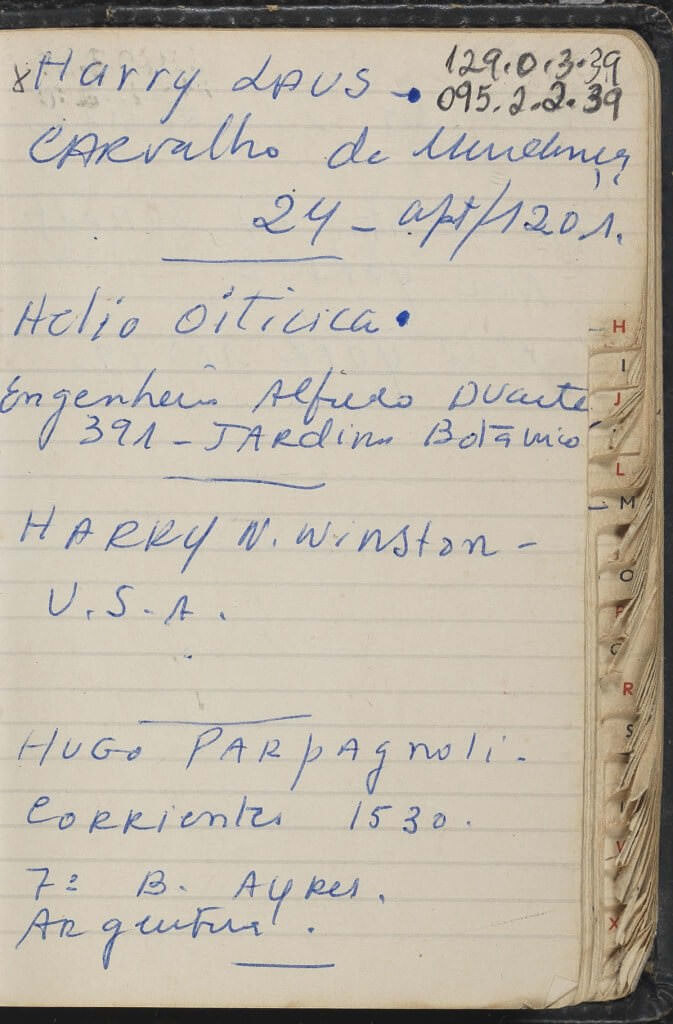 129.0.3.39
095.2.2.39
Harry LAUS -
CARvalho de Mendonça
24 - apt/1201.
Helio Oiticica
Engenheiro Alfredo Duarte
391 - JARdim Botânico
HARRY N. Winston -
U.S.A.
HUGO PARpAgnoli.
CORRIentes 1530.
7º B. AyRes.
ARgentina.
H
I
J
L
M
O
P
Q
R
S
V
X